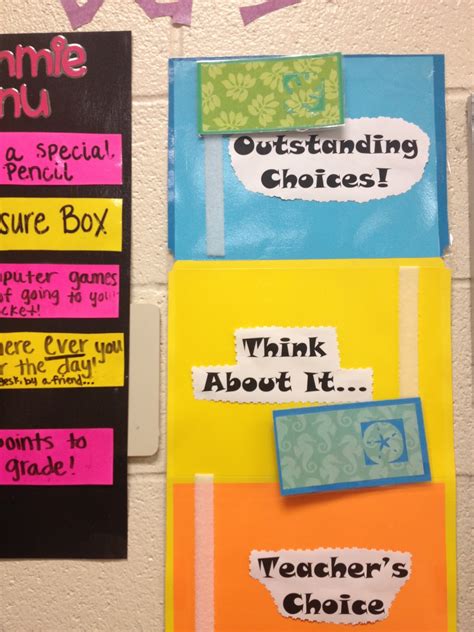 a special
Pencil
sure Box
games
of going to you
here ever you
r the day!
desk, by a friend...
points to
grade!
Outstanding
Choices!
Think
About It...
Teacher's
Choice